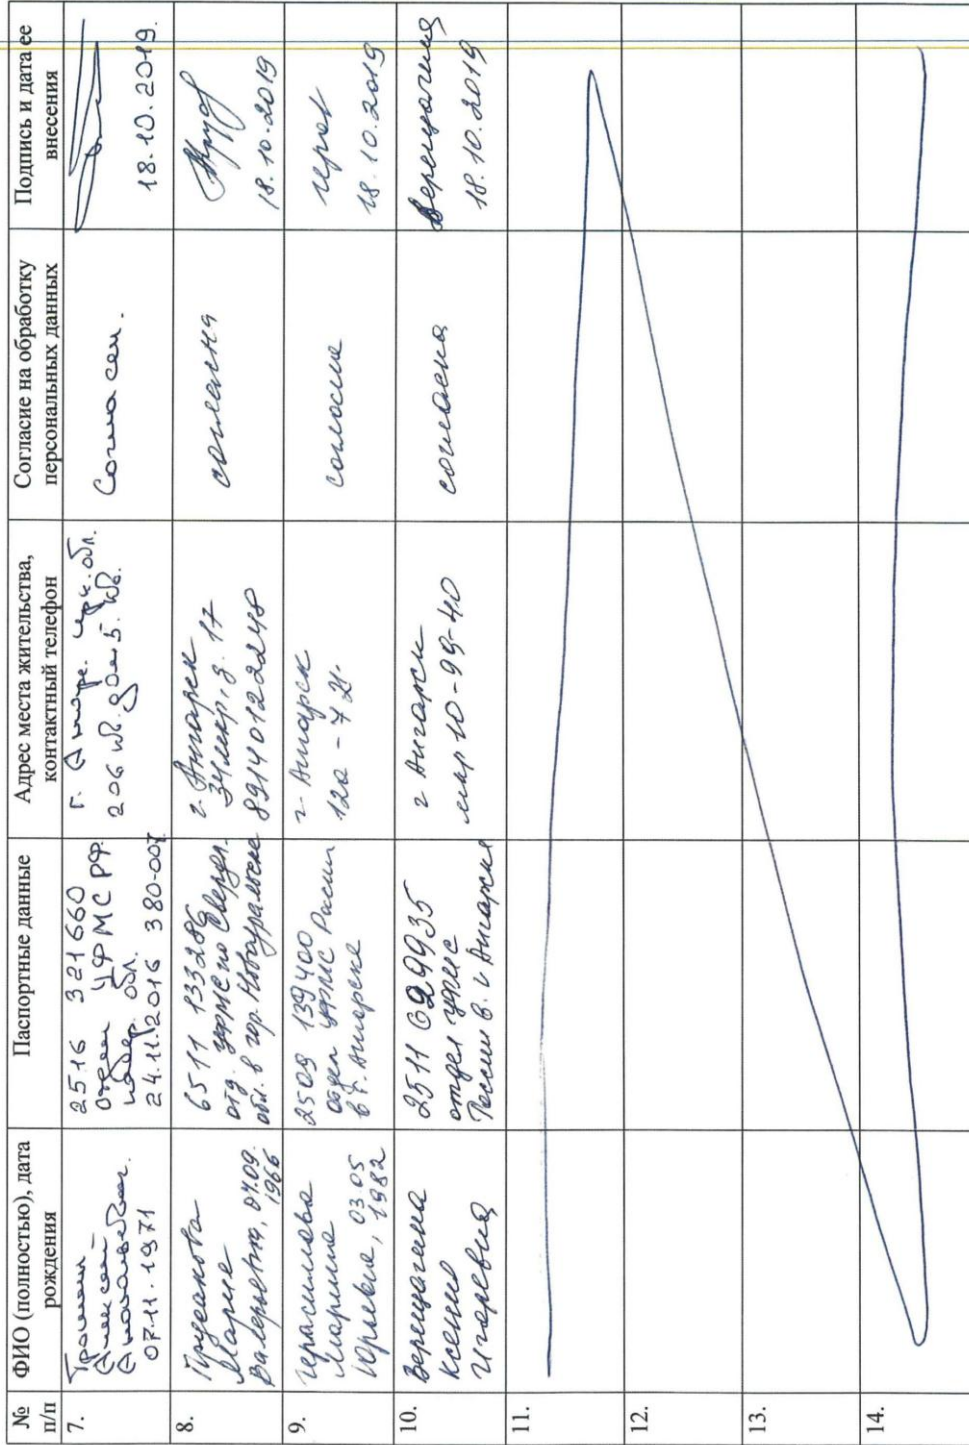 № п/п
ФИО (полностью), дата рождения
Паспортные данные
Адрес места жительства, контактный телефон
Согласие на обработку персональных данных
Подпись и дата ее внесения
7.
Алексей
07.11.1971
2516 321660
отдел УФМС РФ.
обл.
24.11.2016 380-007
206 кв. дом 5. кв.
Согласен.
18.10.2019.
8.
Мария
Валерьевна, 07.09.
1966
6511 133286
отд. УФМС по Свердл.
обл. в гор. Новоуральске
г. Ангарск
89140122248
согласна
18.10.2019
9.
Герасимова
Марина
Юрьевна, 03.05
1982
2509 139400
отдел УФМС России
в г. Ангарске
г. Ангарск
согласна
18.10.2019
10.
Верещагина
Ксения
Игоревна
2511 629935
отдел УФМС
России в г. Ангарске
г Ангарск
мкр 10-99-40
согласна
Верещагина
18.10.2019
11.
12.
13.
14.